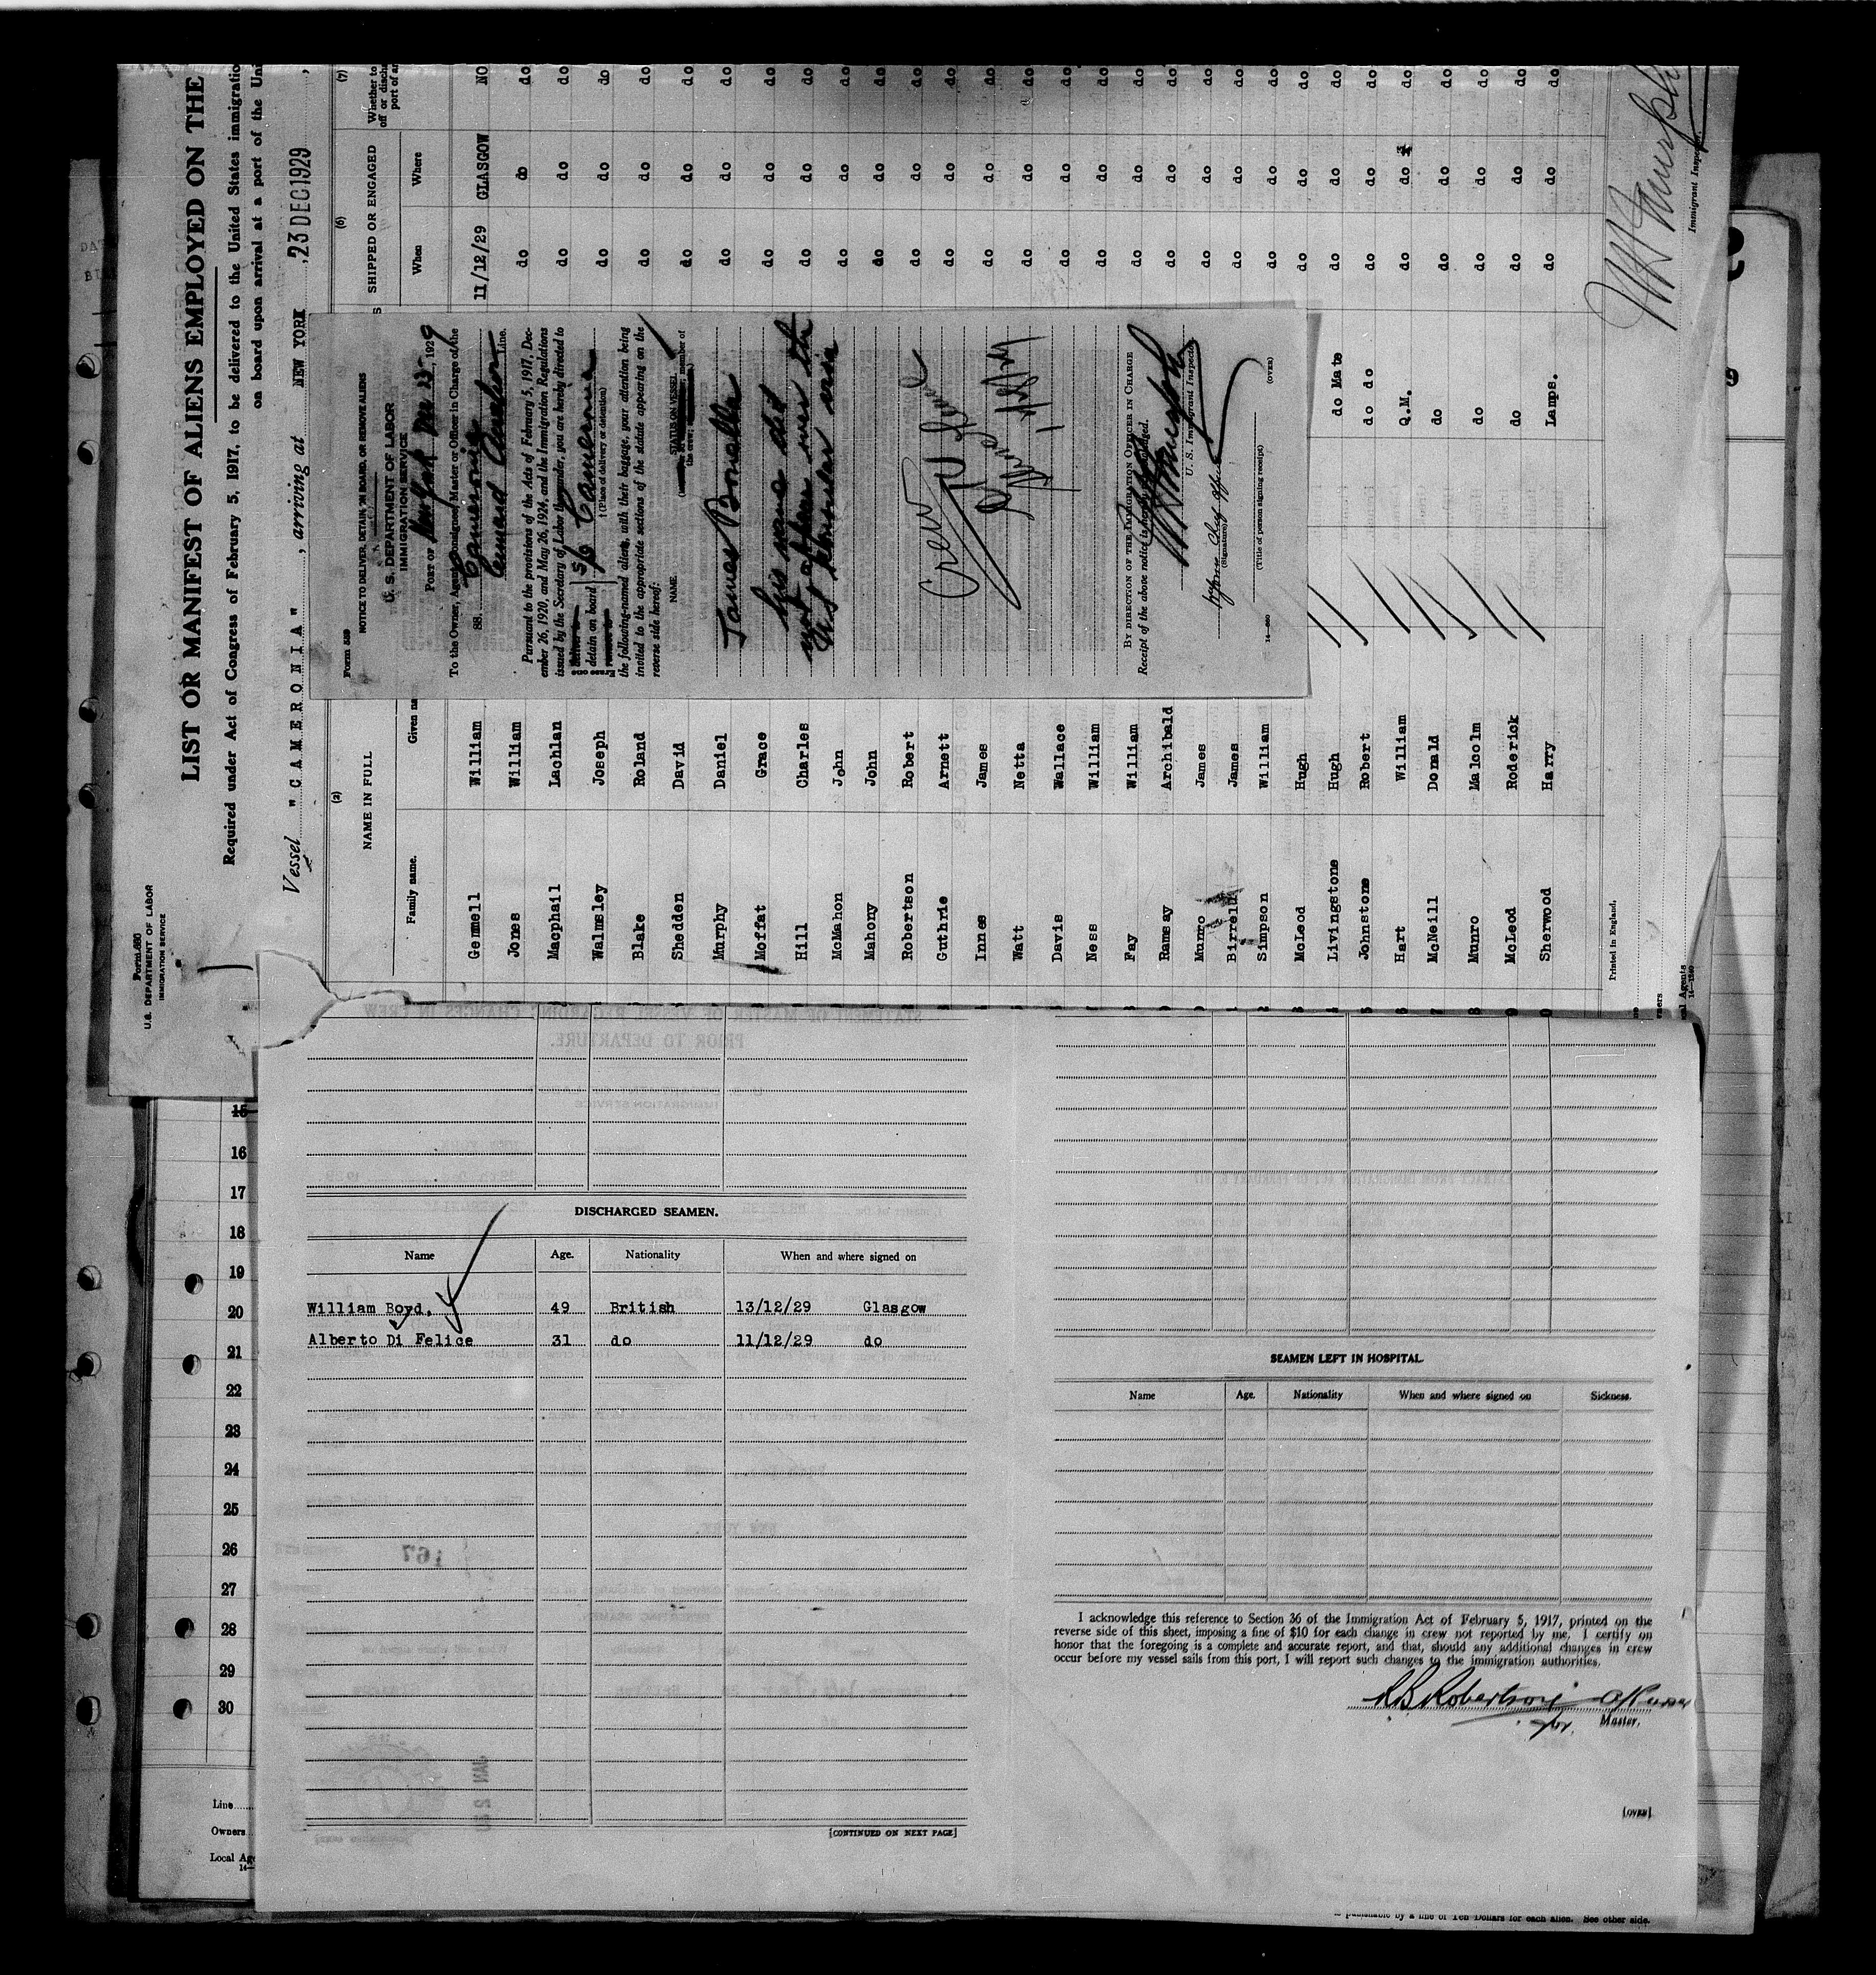 Form 680
U.S. DEPARTMENT OF LABOR
IMMIGRATION SERVICE
LIST OR MANIFEST OF ALIENS EMPLOYED ON THE
Required under Act of Congress of February 5, 1917, to be delivered to the United States
on board upon arrival at a port of the
Vessel "CAMERONIA", arriving at NEW YORK, 23 DEC 1929,
(2) (6) (7)
NAME IN FULL SHIPPED OR ENGAGED Whether to
Family name. When Where
Gemmell William 11/12/29 GLASGOW NO
Jones William do do do
Macphail Lachlan do do do
Walmsley Joseph do do do
Blake Roland do do do
Shedden David do do do
Murphy Daniel do do do
Moffat Grace do do do
Hill Charles do do do
McMahon John do do do
Mahony John do do do
Robertson Robert do do do
Guthrie Arnett do do do
Innes James do do do
Watt Netta do do do
Davis Wallace do do do
Ness William do do do
Fay William do do do
Ramsay Archibald do do do
Munro James do do do
Birrell James do do do
Simpson William do do do
McLeod Hugh do do do
Livingstone Hugh do Mate do do do
Johnstone Robert do do do do do
Hart William Q.M. do do do
McNeill Donald do do do do
Munro Malcolm do do do do
McLeod Roderick do do do do
Sherwood Harry Lamps. do do do
Printed in England.
Immigrant Inspector.
Form 539
NOTICE TO DELIVER, DETAIN ON BOARD, OR REMOVE ALIENS
U. S. DEPARTMENT OF LABOR
IMMIGRATION SERVICE
PORT OF New York Dec 23, 1929
To the Owner, Agent, Consignee, Master or Officer in Charge of the
SS. Cameronia
Cunard Anchor Line.
Pursuant to the provisions of the Acts of February 5, 1917, Dec-
ember 26, 1920, and May 26, 1924, and the Immigration Regulations
issued by the Secretary of Labor thereunder, you are hereby directed to
detain on board S/S Cameronia
† (Place of delivery or detention)
the following-named aliens, with their baggage, your attention being
invited to the appropriate sections of the statute appearing on the
reverse side hereof:
NAME. STATUS ON VESSEL
James
his name did
not appear on the
visa
Crew
BY DIRECTION OF THE IMMIGRATION OFFICER IN CHARGE
U. S. Immigrant Inspector
Receipt of the above notice is hereby acknowledged.
(Signature)
(Title of person signing receipt)
(OVER)
15
16
17
18
19
20
21
22
23
24
25
26
27
28
29
30
Line
Owners
Local
DISCHARGED SEAMEN.
Name Age. Nationality When and where signed on
William Boyd. 49 British 13/12/29 Glasgow
Alberto Di Felice 31 do 11/12/29 do
[CONTINUED ON NEXT PAGE]
SEAMEN LEFT IN HOSPITAL.
Name Age. Nationality When and where signed on Sickness.
I acknowledge this reference to Section 36 of the Immigration Act of February 5, 1917, printed on the
reverse side of this sheet, imposing a fine of $10 for each change in crew not reported by me. I certify on
honor that the foregoing is a complete and accurate report, and that, should any additional changes in crew
occur before my vessel sails from this port, I will report such changes to the immigration authorities.
Robertson
for Master.
[OVER]
punishable by a fine of Ten Dollars for each alien. See other side.